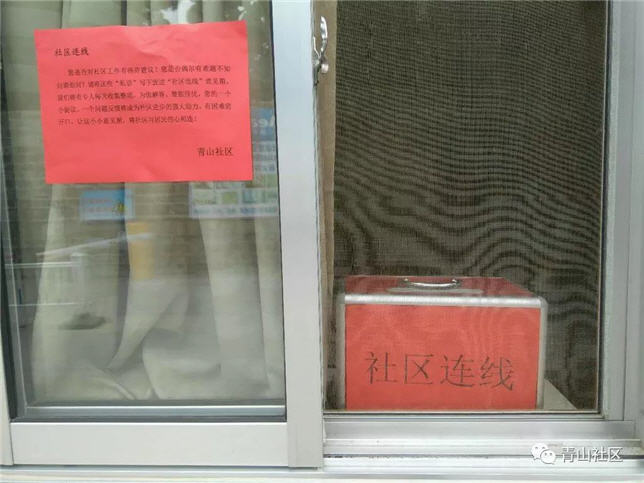 社区连线
您是否对社区工作有些许建议！您是否偶尔有难题不知
向谁倾诉？请将这些“私语”写下放进“社区连线”意见箱，
我们将有专人每天收集整理，为您解答、帮您排忧，您的一个
小建议、一个问题反馈将成为社区进步的强大动力，有困难您
开口，让这小小意见箱，将社区与居民的心相连！
青山社区
社区连线
青山社区